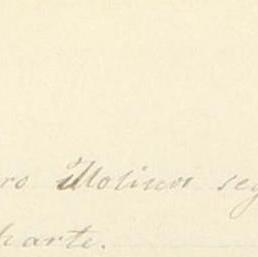 ro Molinos seg
harte.